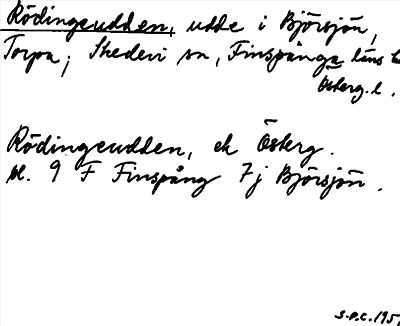 Rödingeudden, udde i Björsjön,
Torpa, Skedevi sn, Finspånga läns h
Österg. l.
Rödingeudden, ek Österg.
bl. 9 F Finspång 7j Björsjön.
S.P.C. 195